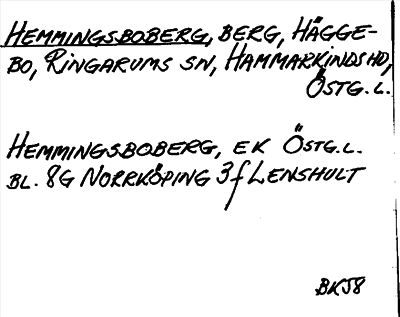 HEMMINGSBOBERG, BERG, HÄGGE-
BO, RINGARUMS SN, HAMMARKINDS HD,
ÖSTG. L.
HEMMINGSBOBERG, EK ÖSTG. L.
BL. 8G NORRKÖPING 3f LENSHULT
BKJ8